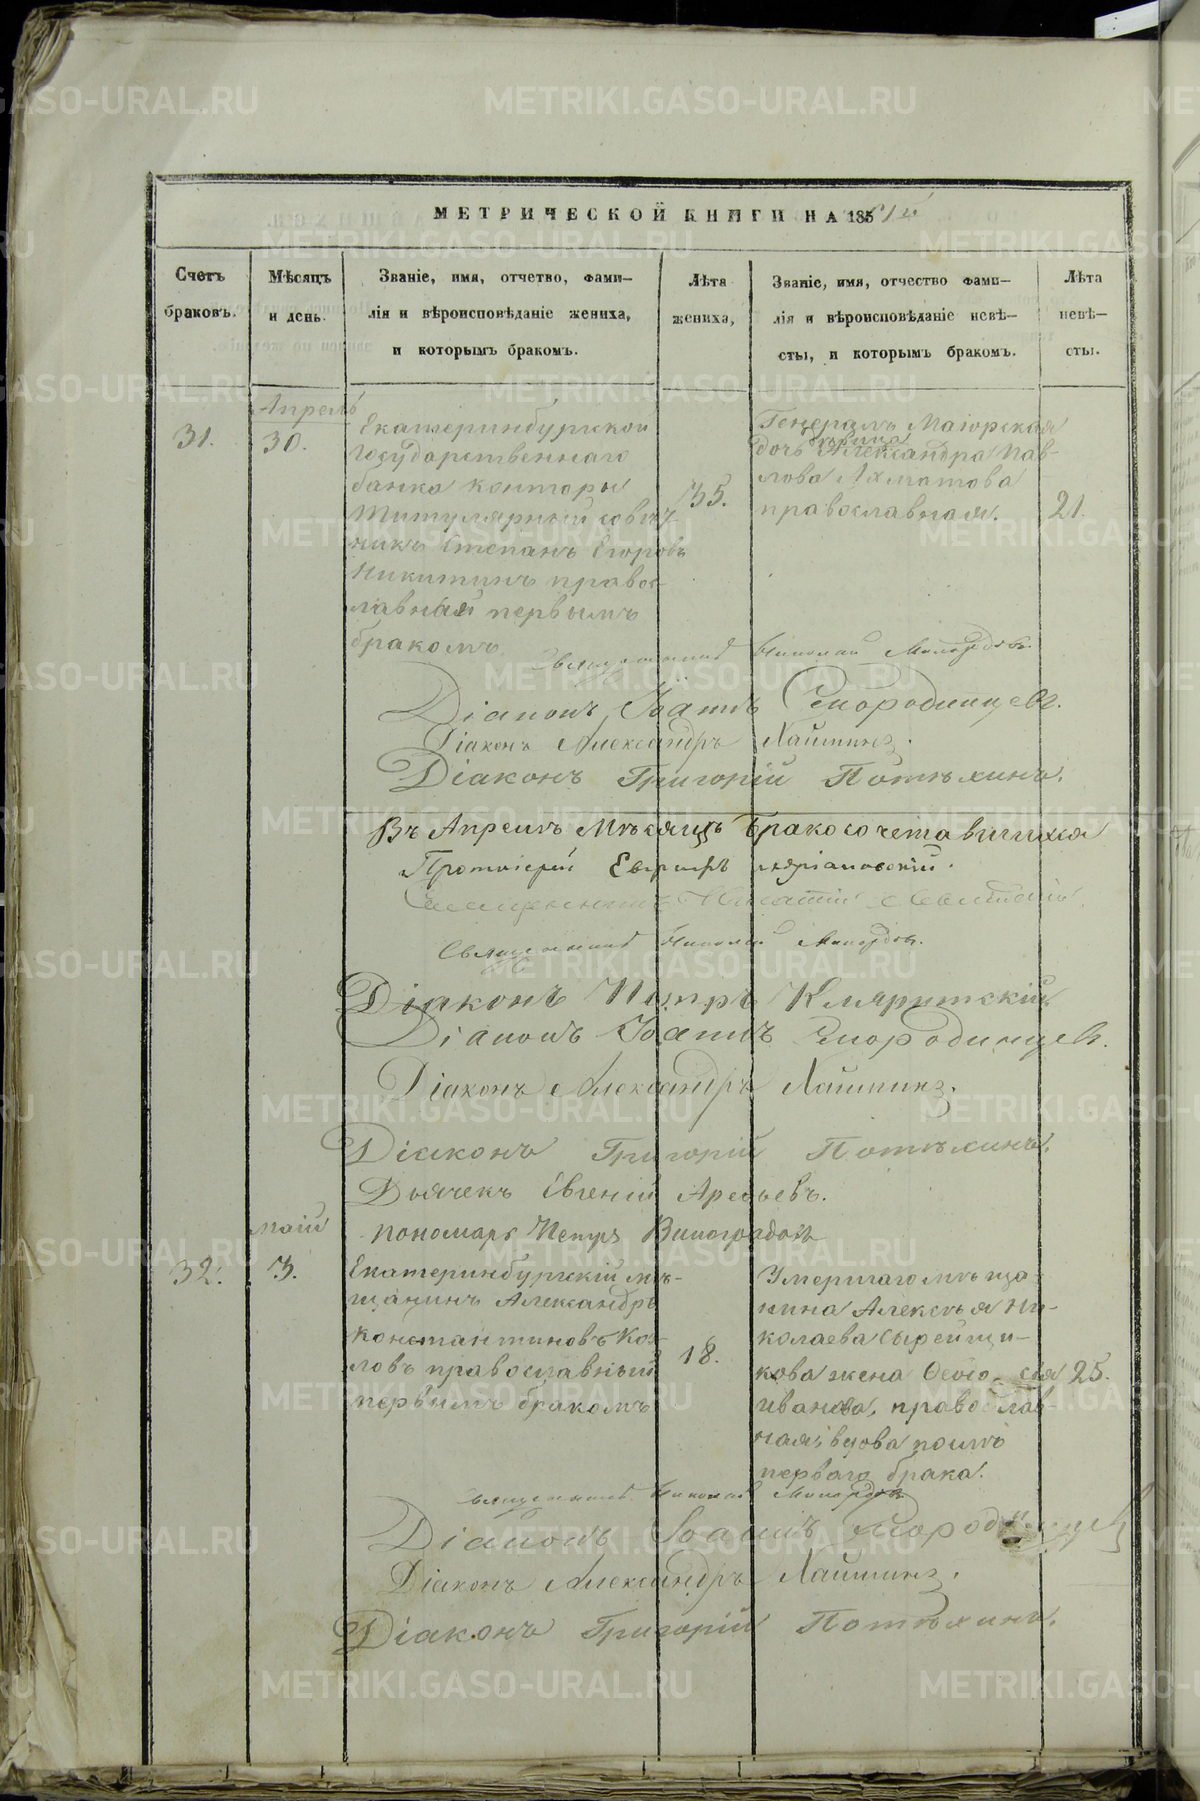 МЕТРИЧЕСКОЙ КНИГИ НА 185
Счетъ браковъ.
Мѣсяцъ и день.
Званіе, имя, отчетво, фами-
лія и вѣроисповѣданіе жениха,
и которымъ бракомъ.
Лѣта жениха,
Званіе, имя, отчество фами-
лія и вѣроисповѣданіе невѣ-
сты, и которымъ бракомъ.
Лѣта невѣ-
сты.
31.
Апрель
30.
Екатеринбургской
Государственнаго
банка конторы
Титулярный совѣт-
никъ Степанъ Егоровъ
Никитинъ правос-
лавный первымъ
бракомъ
35.
Генералъ Маіорская
дочь Александра Пав-
лова Ахматова
православная.
21.
Священникъ Николай
Діаконъ Іоаннъ Смородинцевъ.
Діаконъ Александръ Лаишинъ.
Діаконъ Григорій Потѣхинъ.
Въ Апрелѣ Мѣсяцѣ бракосочетавшихся
Протоіерей
Священникъ
Священникъ Николай
Діаконъ Петръ
Діаконъ Іоаннъ Смородинцевъ.
Діаконъ Александръ Лаишинъ.
Діаконъ Григорій Потѣхинъ.
Дьячекъ Евгеній Арефьевъ.
пономарь Петръ Виноградовъ
32.
маій
3.
Екатеринбургскій мѣ-
щанинъ Александръ
Константиновъ Коз-
ловъ православный
первымъ бракомъ
18.
Умершаго мѣща-
нина Алексѣя Ни-
колаева Сырейщи-
кова жена
Иванова, православ-
ная, вдова послѣ
перваго брака.
25.
Священникъ Николай
Діаконъ Іоаннъ Смородинцевъ
Діаконъ Александръ Лаишинъ.
Діаконъ Григорій Потѣхинъ.
METRIKI.GASO-URAL.RU